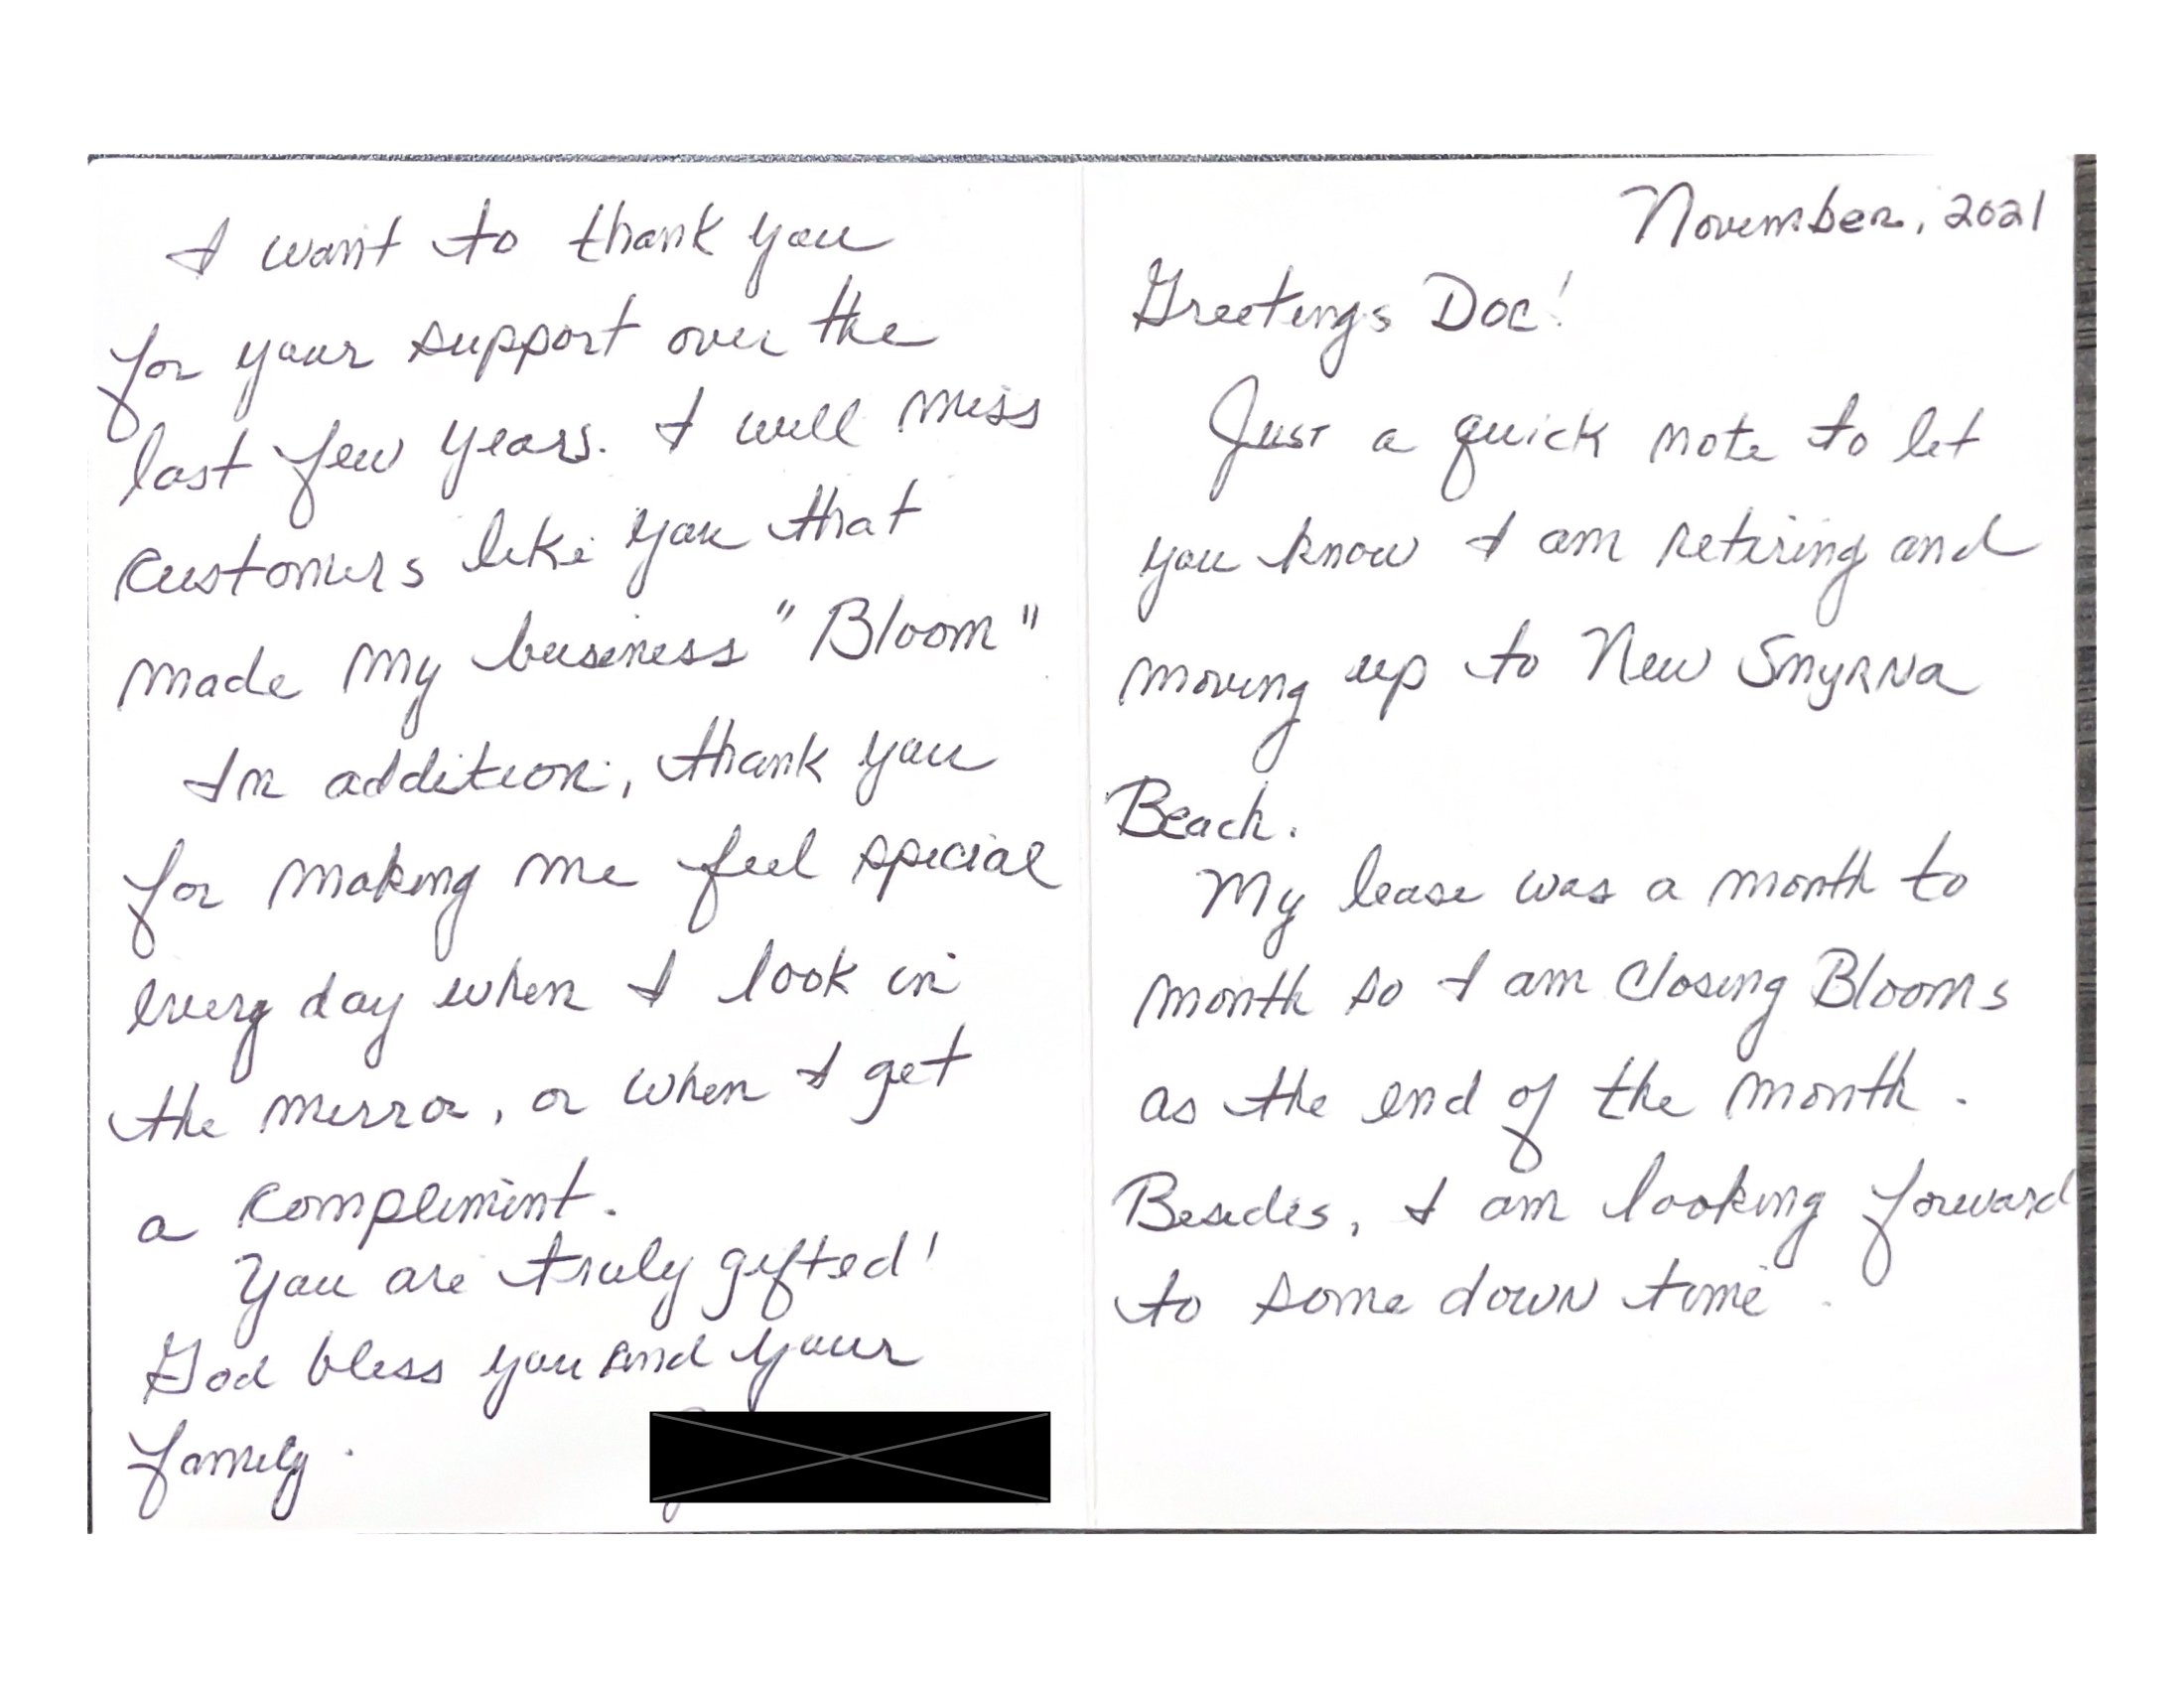 November, 2021
Greetings Doc!
Just a quick note to let
you know I am retiring and
moving up to New Smyrna
Beach.
My lease was a month to
month so I am closing Blooms
as the end of the month.
Besides, I am looking forward
to some down time.
I want to thank you
for your support over the
last few years. I will miss
customers like you that
made my business "Bloom".
In addition, thank you
for making me feel special
every day when I look in
the mirror, or when I get
a compliment.
You are truly gifted!
God bless you and your
family.